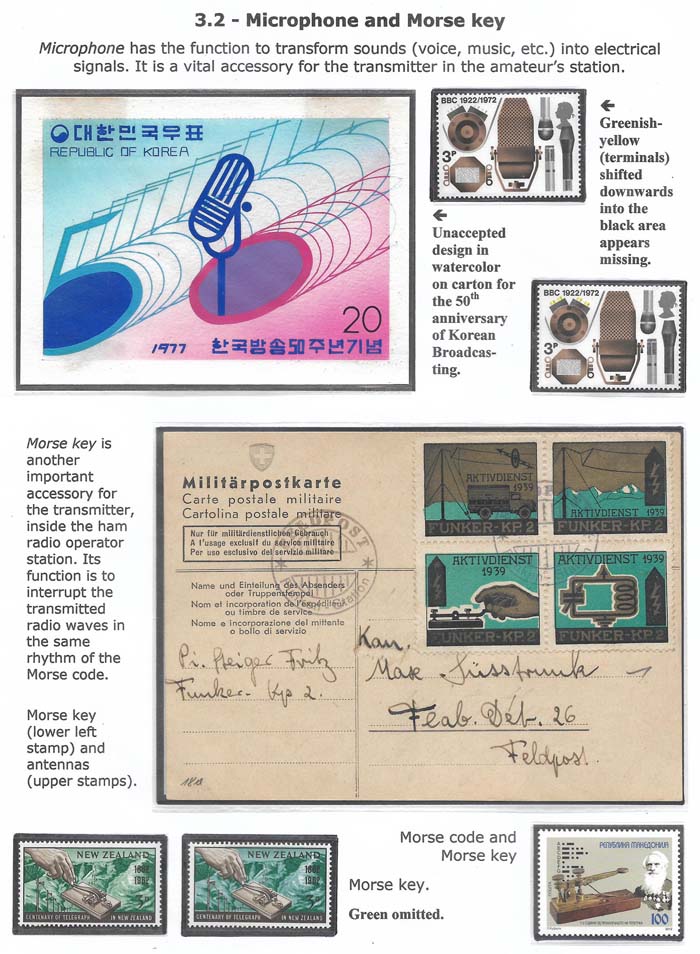 3.2 - Microphone and Morse key
Microphone has the function to transform sounds (voice, music, etc.) into electrical
signals. It is a vital accessory for the transmitter in the amateur's station.
대한민국우표
REPUBLIC OF KOREA
20
1977 한국방송50주년기념
BBC 1922/1972
3P
←
Greenish-
yellow
(terminals)
shifted
downwards
into the
black area
appears
missing.
←
Unaccepted
design in
watercolor
on carton for
the 50th
anniversary
of Korean
Broadcas-
ting.
BBC 1922/1972
3P
Morse key is
another
important
accessory for
the transmitter,
inside the ham
radio operator
station. Its
function is to
interrupt the
transmitted
radio waves in
the same
rhythm of the
Morse code.
Morse key
(lower left
stamp) and
antennas
(upper stamps).
Militärpostkarte
Carte postale militaire
Cartolina postale militare
Nur für militärdienstlichen Gebrauch
A l'usage exclusif du service militaire
Per uso esclusivo del servizio militare
Name und Einteilung des Absenders
oder Truppenstempel
Nom et incorporation de l'expéditeur
ou timbre de service
Nome e incorporazione del mittente
o bollo di servizio
Pi. Steiger Fritz
Funker-Kp 2.
AKTIVDIENST
1939
FUNKER-KP. 2
AKTIVDIENST
1939
FUNKER-KP. 2
AKTIVDIENST
1939
FUNKER-KP. 2
AKTIVDIENST
1939
FUNKER-KP. 2
FELDPOST
Kan.
Max Süsstrunk
Det. 26
Feldpost.
NEW ZEALAND
1862
1962
3D
CENTENARY OF TELEGRAPH IN NEW ZEALAND
NEW ZEALAND
1862
1962
3D
CENTENARY OF TELEGRAPH IN NEW ZEALAND
Morse key.
Green omitted.
Morse code and
Morse key
РЕПУБЛИКА МАКЕДОНИЈА
100